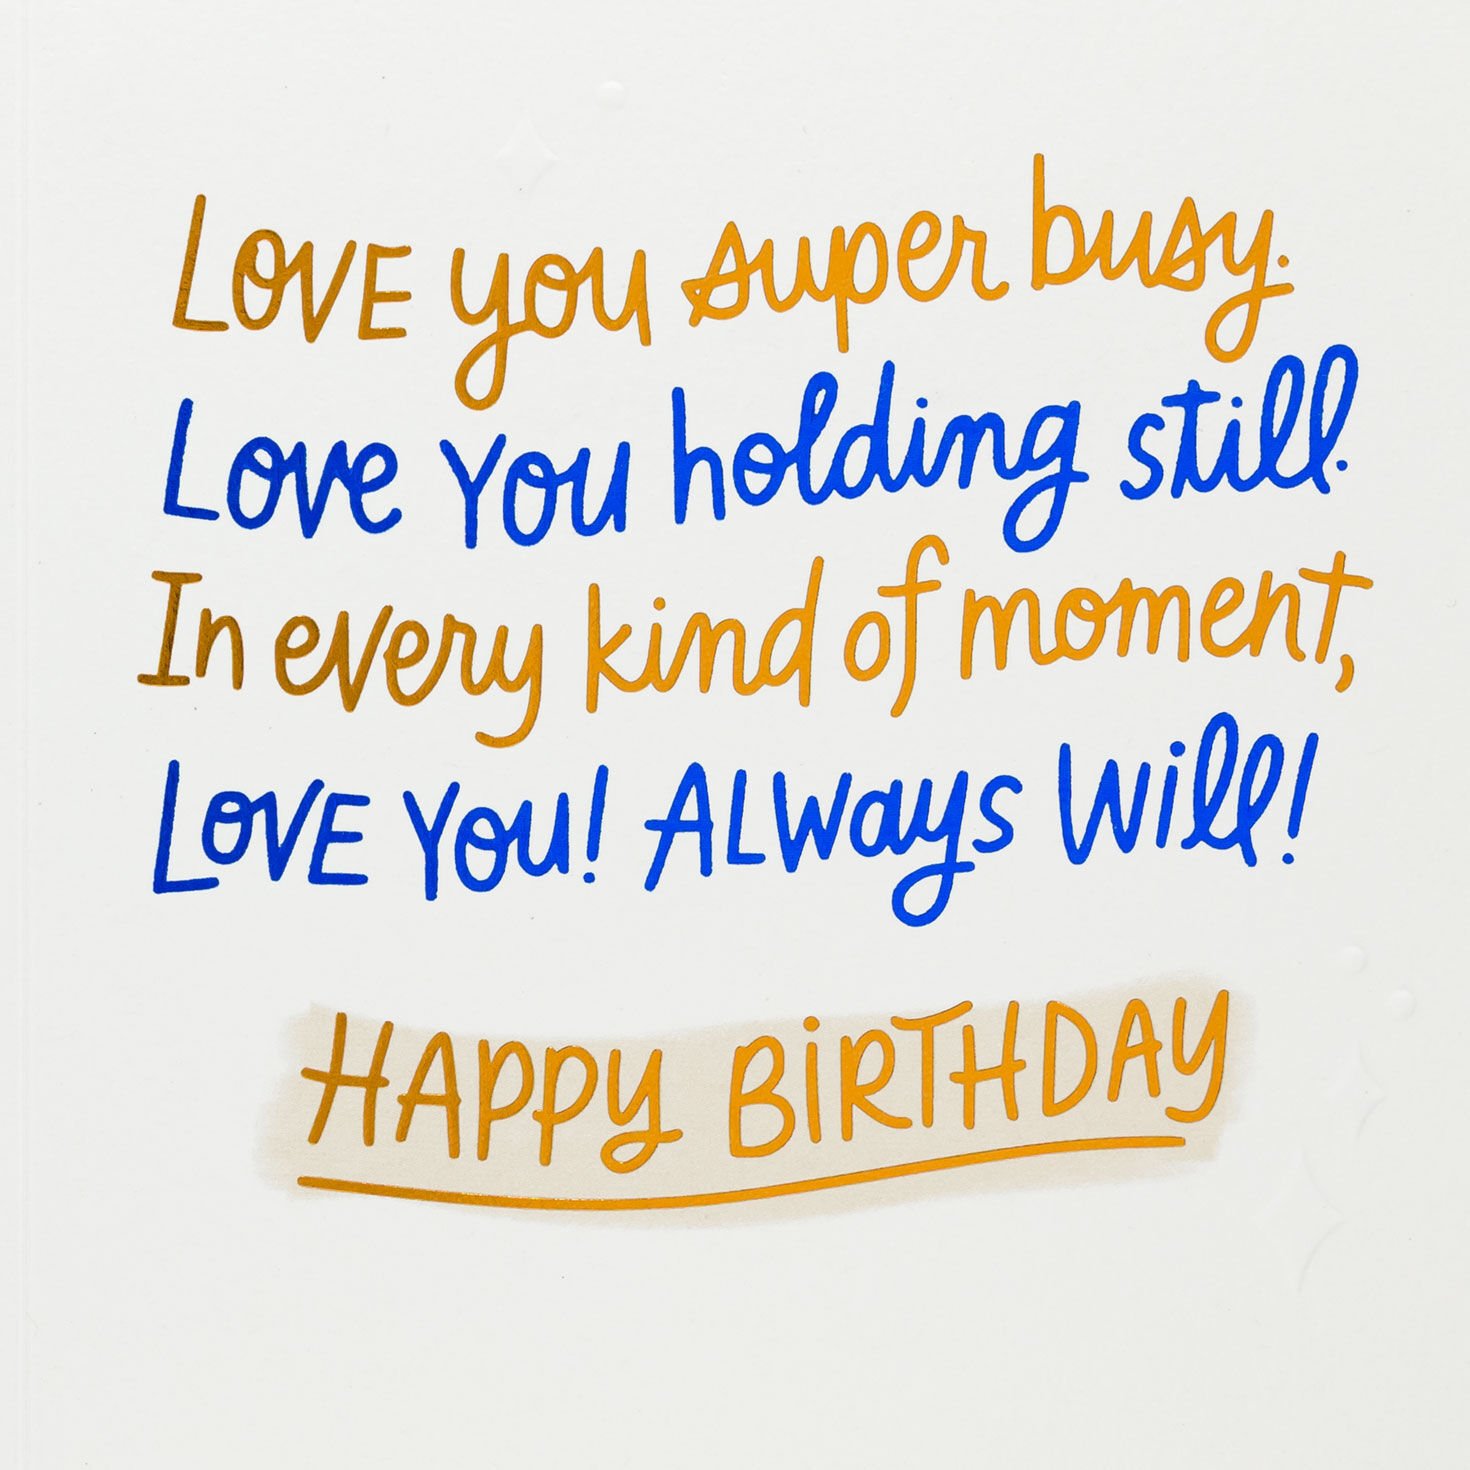 LOVE you super busy.
Love you holding still.
In every kind of moment,
LOVE YOU! ALWays Will!
HAPPY BiRTHDAY